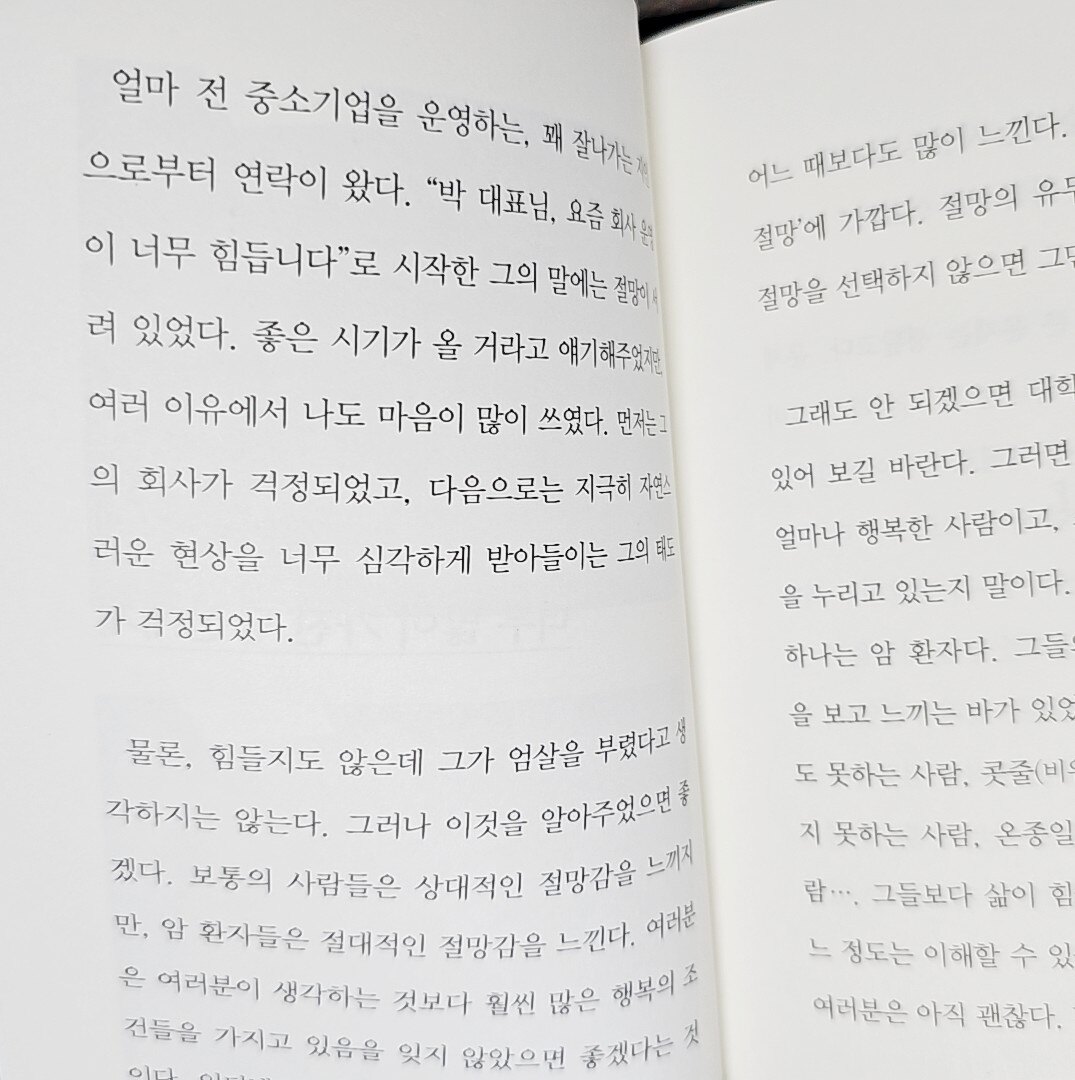 얼마 전 중소기업을 운영하는, 꽤 잘나가는 지인
으로부터 연락이 왔다. “박 대표님, 요즘 회사 운영
이 너무 힘듭니다”로 시작한 그의 말에는 절망이 서
려 있었다. 좋은 시기가 올 거라고 얘기해주었지만,
여러 이유에서 나도 마음이 많이 쓰였다. 먼저는 그
의 회사가 걱정되었고, 다음으로는 지극히 자연스
러운 현상을 너무 심각하게 받아들이는 그의 태도
가 걱정되었다.
물론, 힘들지도 않은데 그가 엄살을 부렸다고 생
각하지는 않는다. 그러나 이것을 알아주었으면 좋
겠다. 보통의 사람들은 상대적인 절망감을 느끼지
만, 암 환자들은 절대적인 절망감을 느낀다. 여러분
은 여러분이 생각하는 것보다 훨씬 많은 행복의 조
건들을 가지고 있음을 잊지 않았으면 좋겠다는 것
이다.
어느 때보다도 많이 느낀다.
절망’에 가깝다. 절망의 유무
절망을 선택하지 않으면 그만
그래도 안 되겠으면 대학
있어 보길 바란다. 그러면
얼마나 행복한 사람이고,
을 누리고 있는지 말이다.
하나는 암 환자다. 그들의
을 보고 느끼는 바가 있었
도 못하는 사람, 콧줄(비위
지 못하는 사람, 온종일
람…. 그들보다 삶이 힘
느 정도는 이해할 수 있
여러분은 아직 괜찮다.